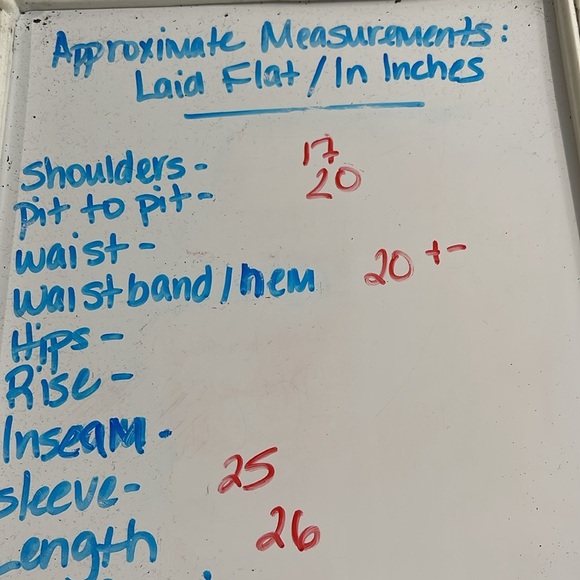 Approximate Measurements:
Laid Flat/In Inches
Shoulders- 17
pit to pit- 20
waist-
waistband/hem 20 +-
Hips-
Rise-
Inseam-
sleeve- 25
Length 26